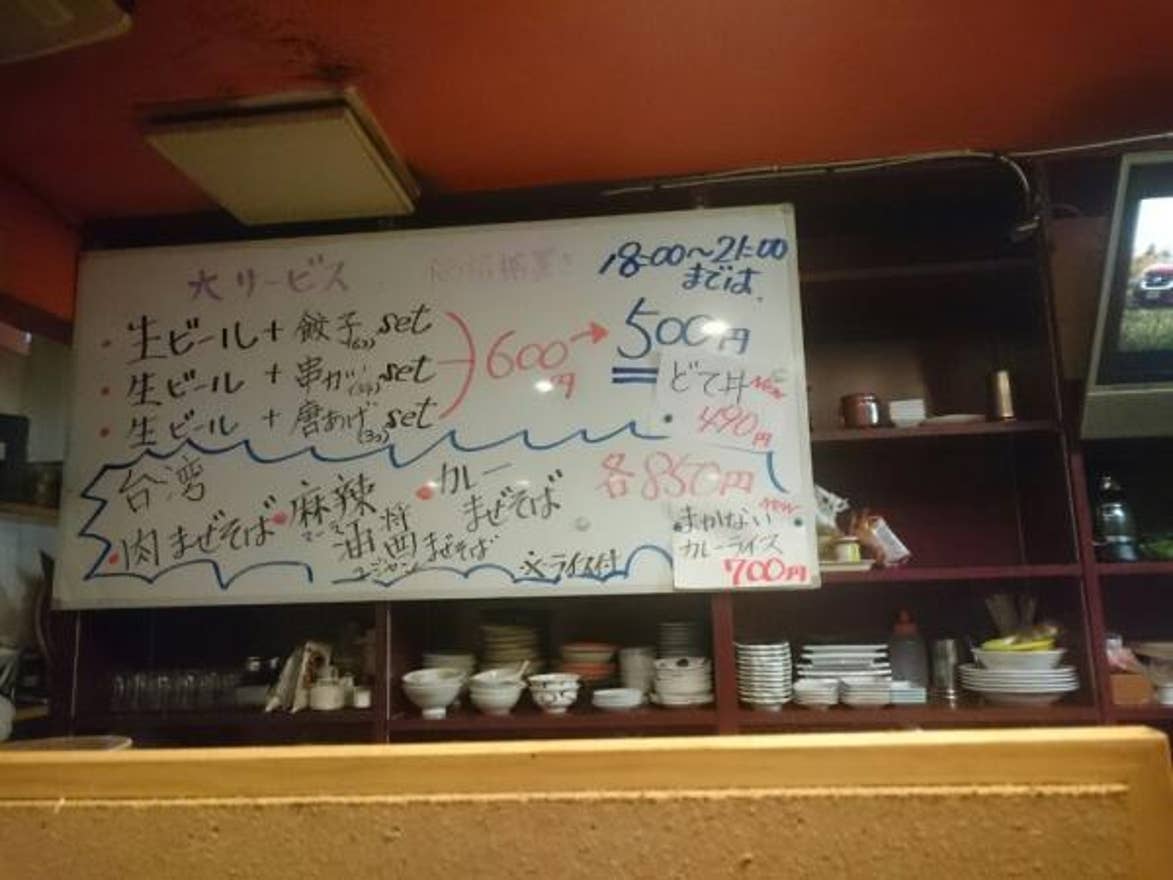 大サービス
18:00〜21:00
までは、
・生ビール+餃子(6コ)set
・生ビール+串カツ(3本)set
・生ビール+唐あげ(3コ)set
600円→500円
どて丼 New
490円
台湾
・肉まぜそば
・麻辣
マーラー
油西将
ユージャン
まぜそば
・カレー
まぜそば
各850円
※ライス付
new
まかない
カレーライス
700円